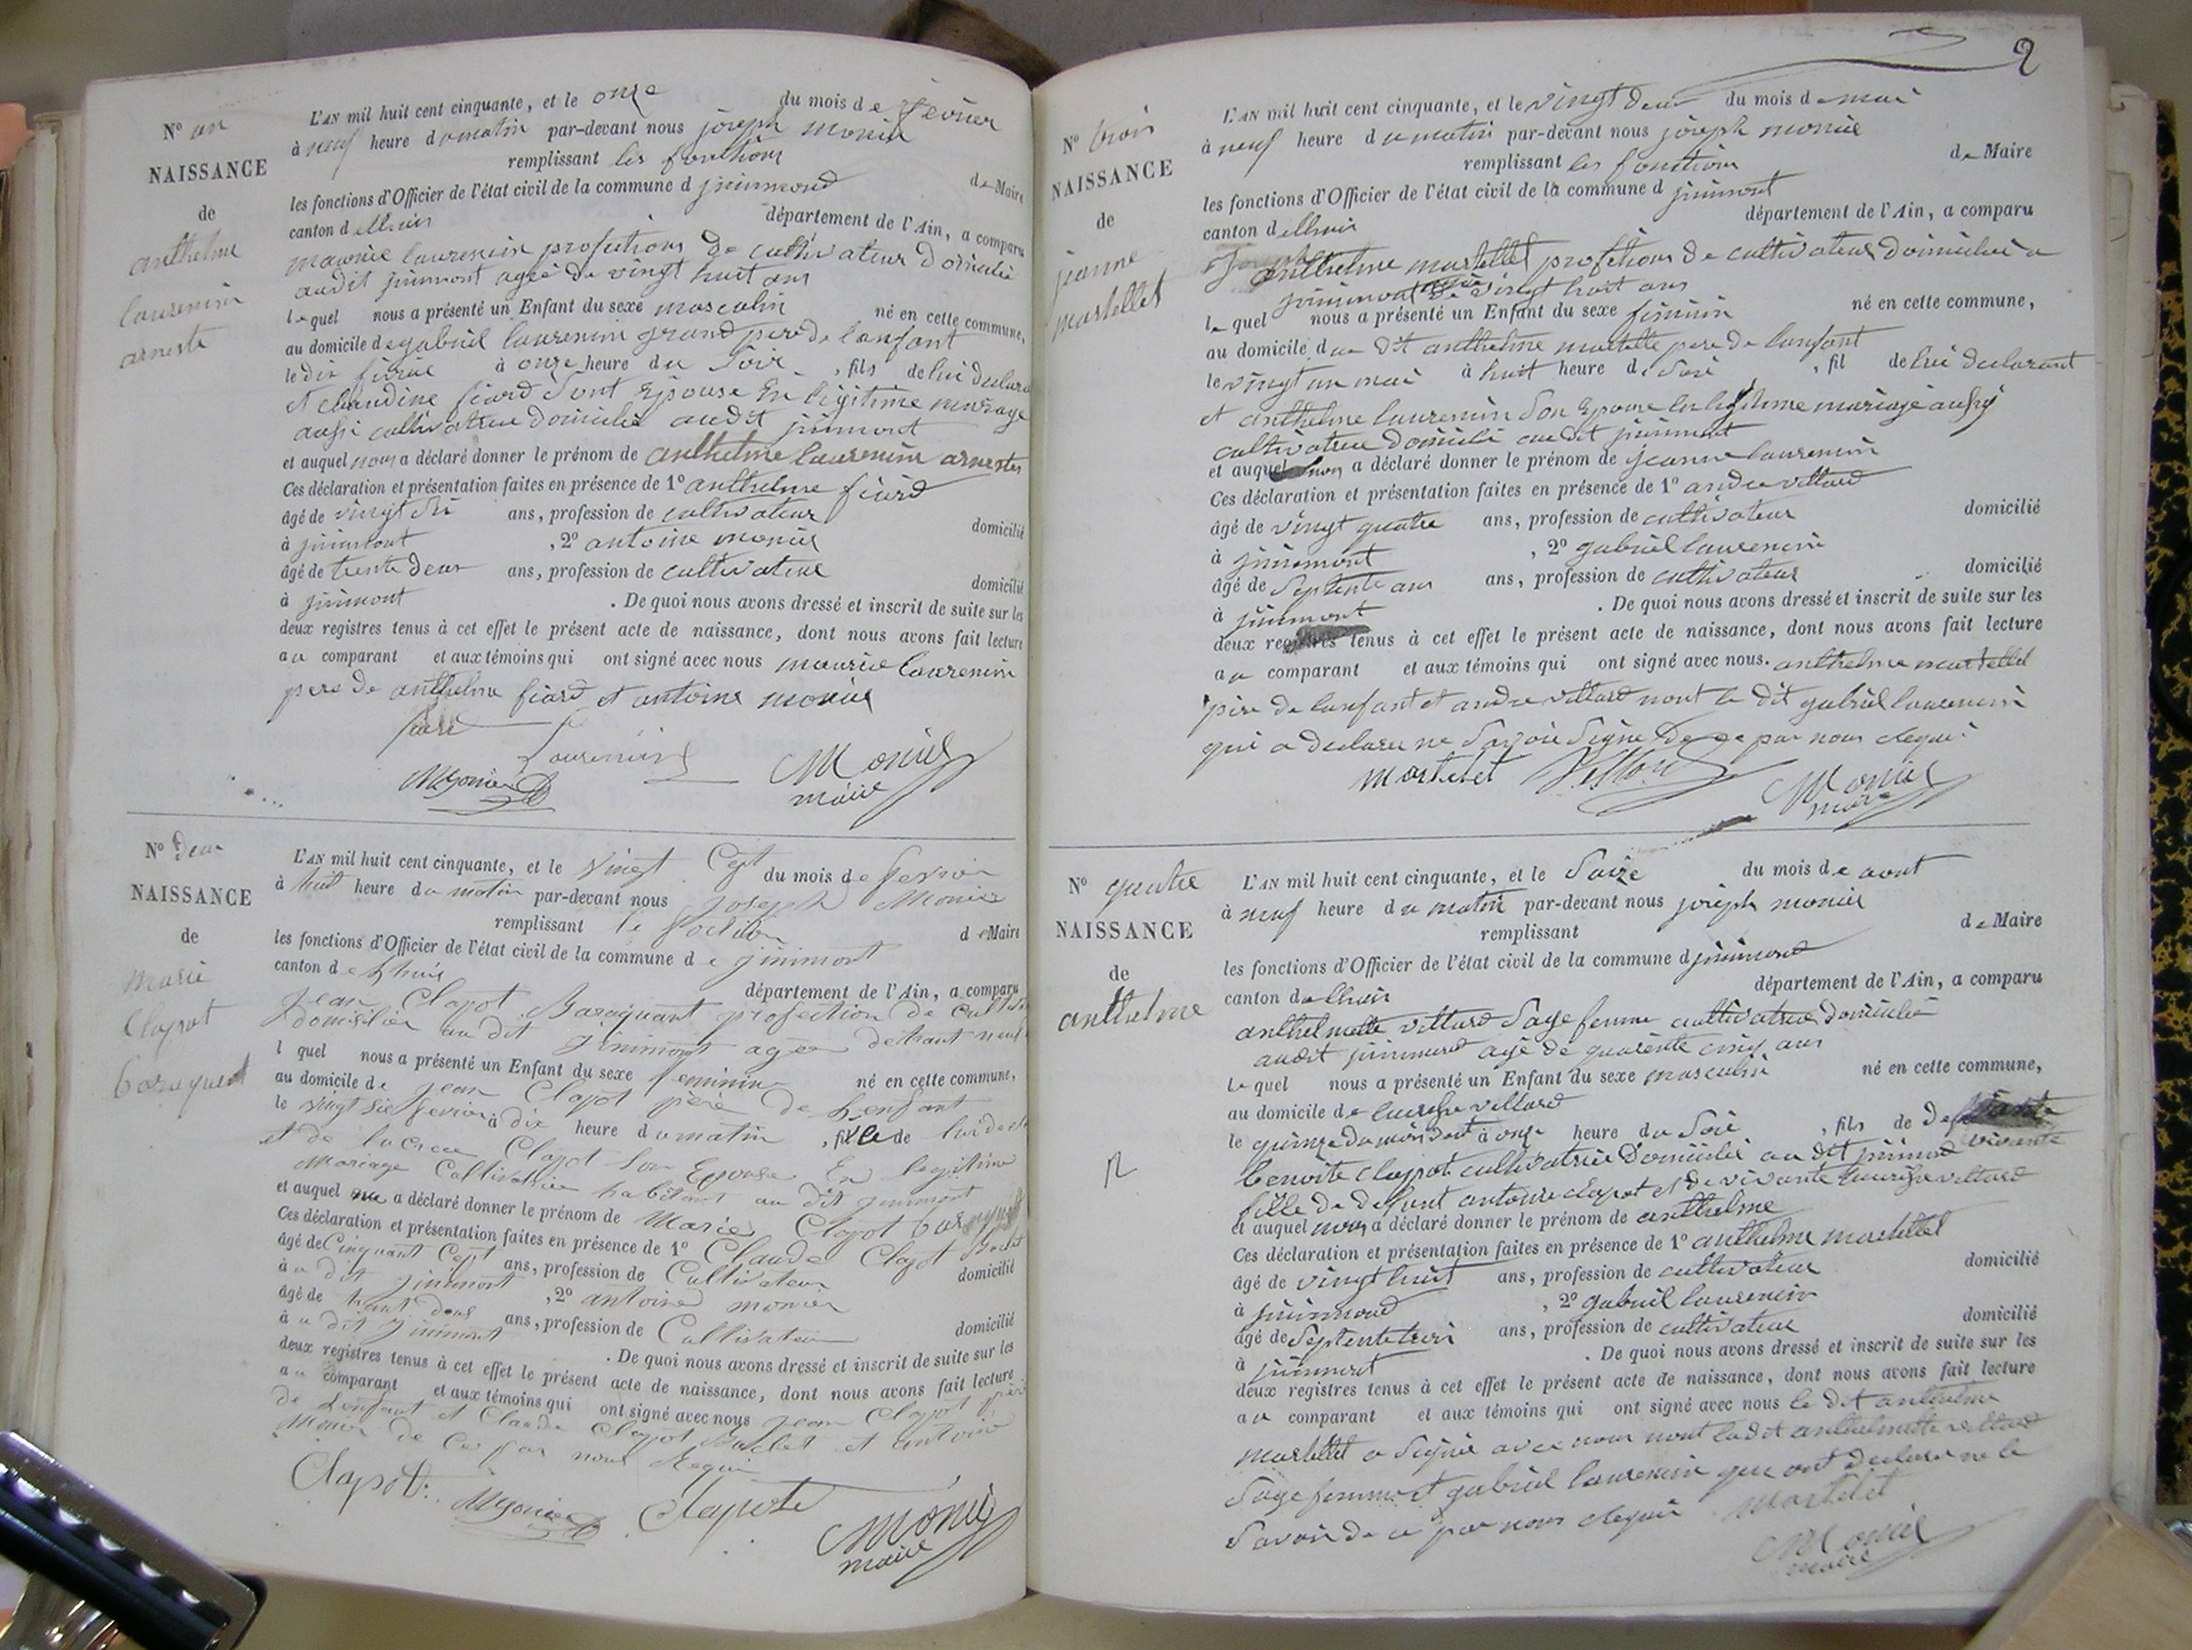 N° un
NAISSANCE
de
anthelme
laurencin
arneste
L'AN mil huit cent cinquante, et le onze du mois de févrie
à neuf heure du matin par-devant nous joseph monier
remplissant les fonthions de Maire
les fonctions d'Officier de l'état civil de la commune d
canton d lhuis département de l'Ain, a comparu
maurice laurencin profithions de cultivateur domicilié
audit agée de vingt huit ans
le quel nous a présenté un Enfant du sexe masculin né en cette commune,
au domicile de gabriel laurencin grand pere de lanfant
le dix à onze heure du Soir, fils de lui declara
et claudine fiard Sont Epouse En légitime mariage
aussi cultivatrice domicilié audit
et auquel nous a déclaré donner le prénom de anthelme laurencin arnestes
Ces déclaration et présentation faites en présence de 1° anthelme fiard
âgé de vingt ans, profession de cultivateur domicilié
à , 2° antoine monier
âgé de trente deux ans, profession de cultivateur domicilié
à . De quoi nous avons dressé et inscrit de suite sur les
deux registres tenus à cet effet le présent acte de naissance, dont nous avons fait lecture
au comparant et aux témoins qui ont signé avec nous maurice laurencin
pere de anthelme fiard et antoine monier
fiard
Laurencin
Monier
Monier
maire
N° deux
NAISSANCE
de
marie
Clapot
baraquand
L'AN mil huit cent cinquante, et le vingt Cept du mois de fevrier
à huit heure du matin par-devant nous Joseph Monier
remplissant le de Maire
les fonctions d'Officier de l'état civil de la commune de jinimont
canton de Lhuis département de l'Ain, a comparu
Jean Clapot Baraquant profection de
domicilier au dit jinimont ager detrant neuf
l quel nous a présenté un Enfant du sexe feminin né en cette commune,
au domicile de Jean Clapot père de Lenfant
le vingt sie fevrier à dix heure du matin, fille de
et de Clapot Son Epouse En legitime
Mariage Cultivatrice habitant au dit jinimont
et auquel a déclaré donner le prénom de Marie Clapot
Ces déclaration et présentation faites en présence de 1° Claude Clapot
âgé de Cinquant Cept ans, profession de Cultivateur domicilié
à u dit jinimont , 2° antoine monier
âgé de trant deus ans, profession de Cultivateur domicilié
à u dit jinimont . De quoi nous avons dressé et inscrit de suite sur les
deux registres tenus à cet effet le présent acte de naissance, dont nous avons fait lecture
au comparant et aux témoins qui ont signé avec nous Jean Clapot père
de Lenfant et Claude Clapot et antoine
Monier de Ce par nous Requi
Clapot
Monier
Clapot
Monier
maire
2
N° trois
NAISSANCE
de
janne
martellet
L'AN mil huit cent cinquante, et le vingt deux du mois de mai
à neuf heure du matin par-devant nous joseph monier
remplissant les fonction de Maire
les fonctions d'Officier de l'état civil de la commune d jinimont
canton d lhuis département de l'Ain, a comparu
anthelme martellet profethions de cultivateur domicilié a
jinimont agée de vingt huit ans
le quel nous a présenté un Enfant du sexe féminin né en cette commune,
au domicile du dit anthelme martelle pere de lanfant
le vingt un mai à huit heure d Soir, fil de lui declarant
et anthelme laurencin Son Epouse En légitime mariage aussy
cultivatrice domicilié audit jinimont
et auquel nous a déclaré donner le prénom de jeanne laurencin
Ces déclaration et présentation faites en présence de 1° andre villard
âgé de vingt quatre ans, profession de cultivateur domicilié
à jinimont , 2° gabriel laurencin
âgé de Septente ans ans, profession de cultivateur domicilié
à jinimont . De quoi nous avons dressé et inscrit de suite sur les
deux registres tenus à cet effet le présent acte de naissance, dont nous avons fait lecture
au comparant et aux témoins qui ont signé avec nous. anthelme martellet
père de lanfant et andre villard nont le dit gabriel laurencin
qui a declaré ne Savoir Signé De ce par nous Requi
Martelet
Villard
Monier
maire
N° quatre
NAISSANCE
de
anthelme
L'AN mil huit cent cinquante, et le Saize du mois de aout
à neuf heure du matin par-devant nous joseph monier
remplissant de Maire
les fonctions d'Officier de l'état civil de la commune d
canton de lhuis département de l'Ain, a comparu
anthelmette villard Sage femme cultivatrice domicilié
audit agé de quarente cinq ans
le quel nous a présenté un Enfant du sexe masculin né en cette commune,
au domicile de villard
le quinze du mois à onze heure du Soir, fils de
vivante
benoite clapot cultivatrice domicilié au dit
fille de defunt antoine clapot et de vivante villard
et auquel nous a déclaré donner le prénom de anthelme
Ces déclaration et présentation faites en présence de 1° anthelme martellet
âgé de vingt huit ans, profession de cultivateur domicilié
à , 2° gabriel laurencin
âgé de Septente ans, profession de cultivateur domicilié
à . De quoi nous avons dressé et inscrit de suite sur les
deux registres tenus à cet effet le présent acte de naissance, dont nous avons fait lecture
au comparant et aux témoins qui ont signé avec nous le dit anthelme
martellet a Signé avec nous nont ladit anthelmette villard
Sage femme et gabriel laurencin qui ont declaré ne le
Savoir De ce par nous Requi
Martelet
Monier
maire